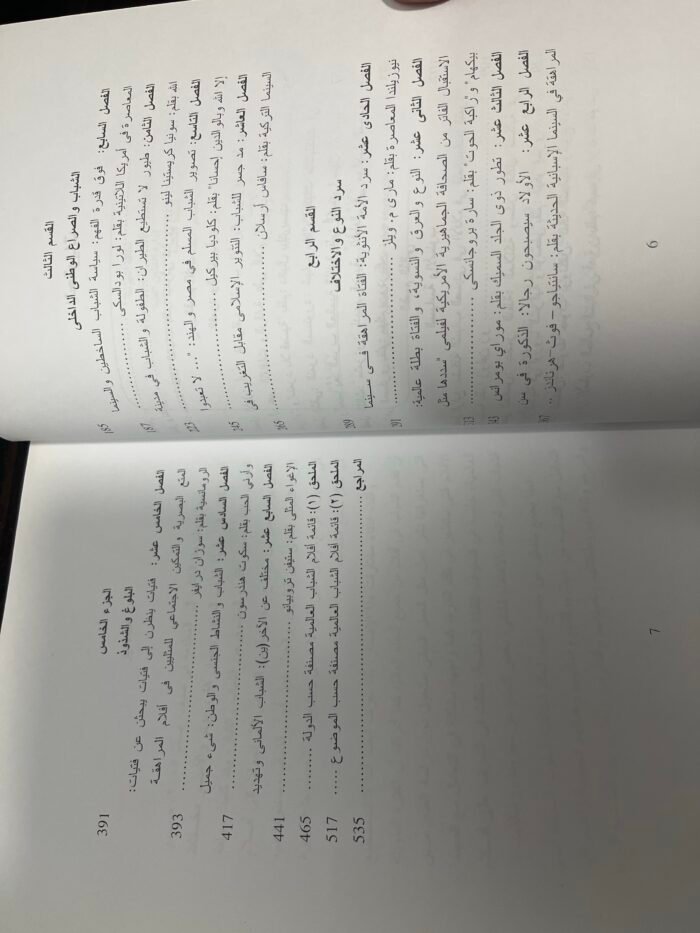 القسم الثالث
الشباب والصراع الوطنى الداخلى
الفصل السابع: فوق قدرة الفهم: سياسة الشباب الساخطين والسينما
المعاصرة فى أمريكا اللاتينية بقلم: لورا بودالسكى
الفصل الثامن: طيور لا تستطيع الطيران: الطفولة والشباب فى مدينة
الله بقلم: سونيا كريستينا لينو
الفصل التاسع: تصوير الشباب المسلم فى مصر والهند: "... لا تعبدوا
إلا الله وبالوالدين إحسانا" بقلم: كلوديا بيركيل
الفصل العاشر: مد جسر للشباب: التنوير الإسلامى مقابل التغريب فى
السينما التركية بقلم: سافاس أرسلان
القسم الرابع
سرد النوع والاختلاف
الفصل الحادى عشر: سرد الأمة الأنثوية: الفتاة المراهقة فى سينما
نيوزيلندا المعاصرة بقلم: مارى م. ويلز
الفصل الثانى عشر: النوع والعرق والنسوية، والفتاة بطلة عالمية:
الاستقبال الفاتر من الصحافة الجماهيرية الأمريكية لفيلمى "سددها مثل
بيكهام" و"راكبة الحوت" بقلم: سارة بروجانسكى
الفصل الثالث عشر: تطور ذوى الجلد السميك بقلم: موراى بومرانس
الفصل الرابع عشر: الأولاد سيصبحون رجالا: الذكورة فى سن
المراهقة فى السينما الإسبانية الحديثة بقلم: سانتياجو - فوث - هرناندز ..
6
الجزء الخامس
البلوغ والشذوذ
391
الفصل الخامس عشر: فتيات ينظرن إلى فتيات يبحثن عن فتيات:
المتع البصرية والتمكين الاجتماعى للمثليين فى أفلام المراهقة
الرومانسية بقلم: سوزان درايفر 393
الفصل السادس عشر: الشباب والنشاط الجنسى والوطن: شىء جميل
وأرنى الحب بقلم: سكوت هندرسون 417
الفصل السابع عشر: مختلف عن الآخر(ين): الشباب الألمانى وتهديد
الإغواء المثلى بقلم: ستيفن تروبيانو 441
الملحق (١): قائمة أفلام الشباب العالمية مصنفة حسب الدولة 465
الملحق (٢): قائمة أفلام الشباب العالمية مصنفة حسب الموضوع 517
المراجع 535
7